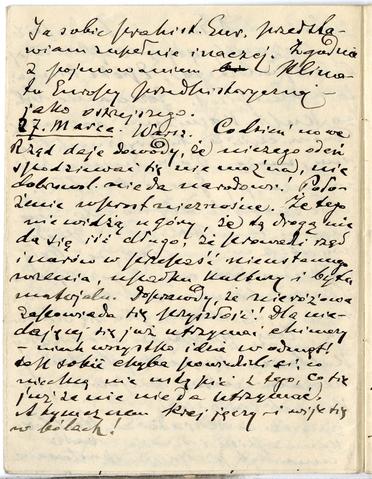 Ja sobie prahist. Eur. przedsta-
wiam zupełnie inaczej. Zgodnie
z pojmowaniem klima-
tu Europy przedhistorycznej
jako ostrzejszego.
27. Marca. Warsz. Codzień nowe
Rząd daje dowody, że niczego odeń
spodziewać się nie można, nic
dobrowol. nie da narodowi! Poło-
żenie wprost nieznośne. Że tego
nie widzą u góry, że tą drogą nie
da się iść długo, że prowadzi rząd
i naród w przepaść nieustannego
wrzenia, upadku kultury i bytu
materjaln. Doprawdy, że nieróżowa
zapowiada się przyszłość! Dla nie-
dającej się już utrzymać chimery
– niech wszystko idzie w odmęt!
sobie chyba powiedzieli ci, co
niechcą nic ustąpić z tego, co się
już żadnie nie da utrzymać.
A tymczasem kraj jęczy i wije się
w bólach!